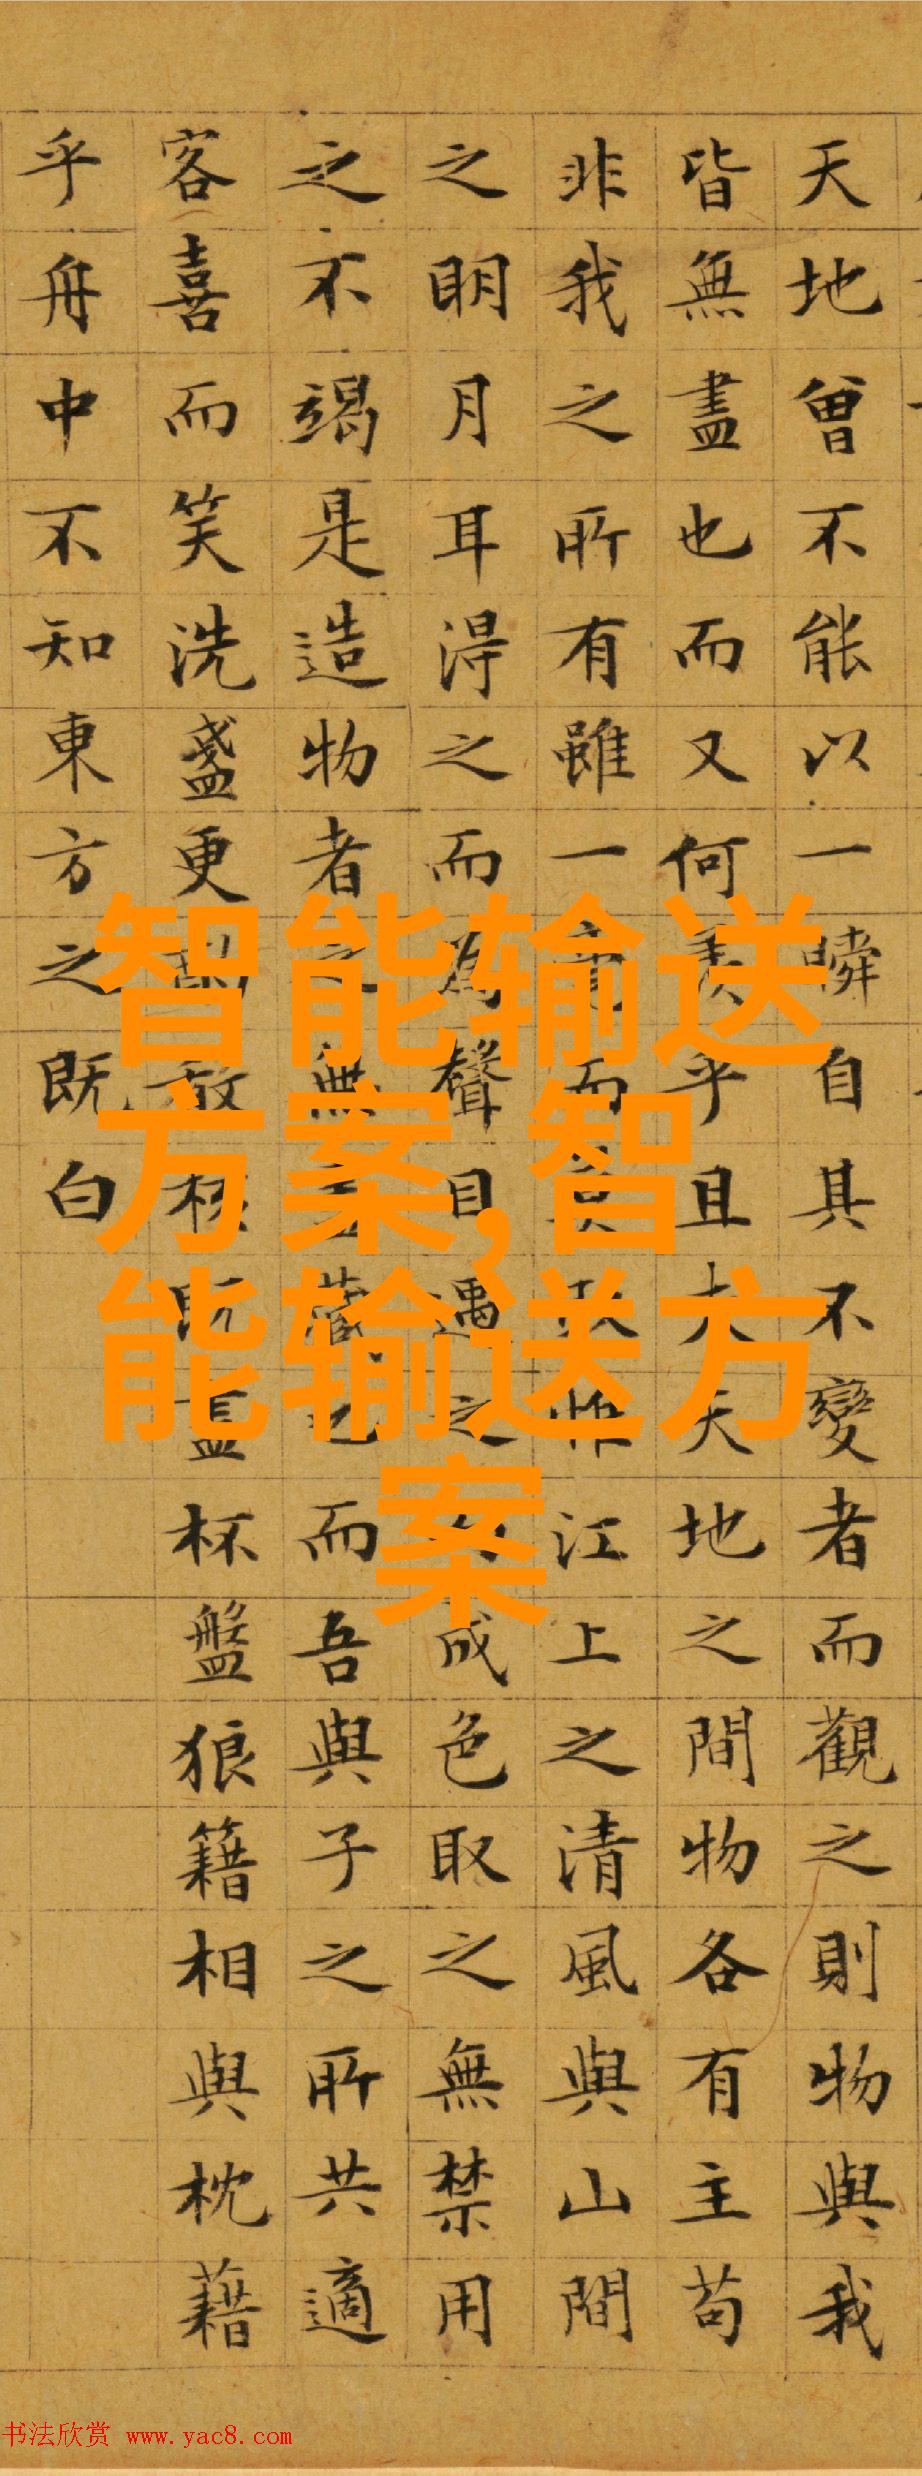 天地曾不能以一瞬自其不變者而觀之則物與我
皆無盡也而又何羨乎且夫天地之間物各有主苟
非我之所有雖一而江上之清風與山間
之明月耳得之而為聲目遇之成色取之無禁用
之不竭是造物者之無藏也而吾與子之所共適
客喜而笑洗盞更核既盡杯盤狼籍相與枕藉
乎舟中不知東方之既白
智能输送
方案,智
能输送方
案
书法欣赏 www.yac8.com